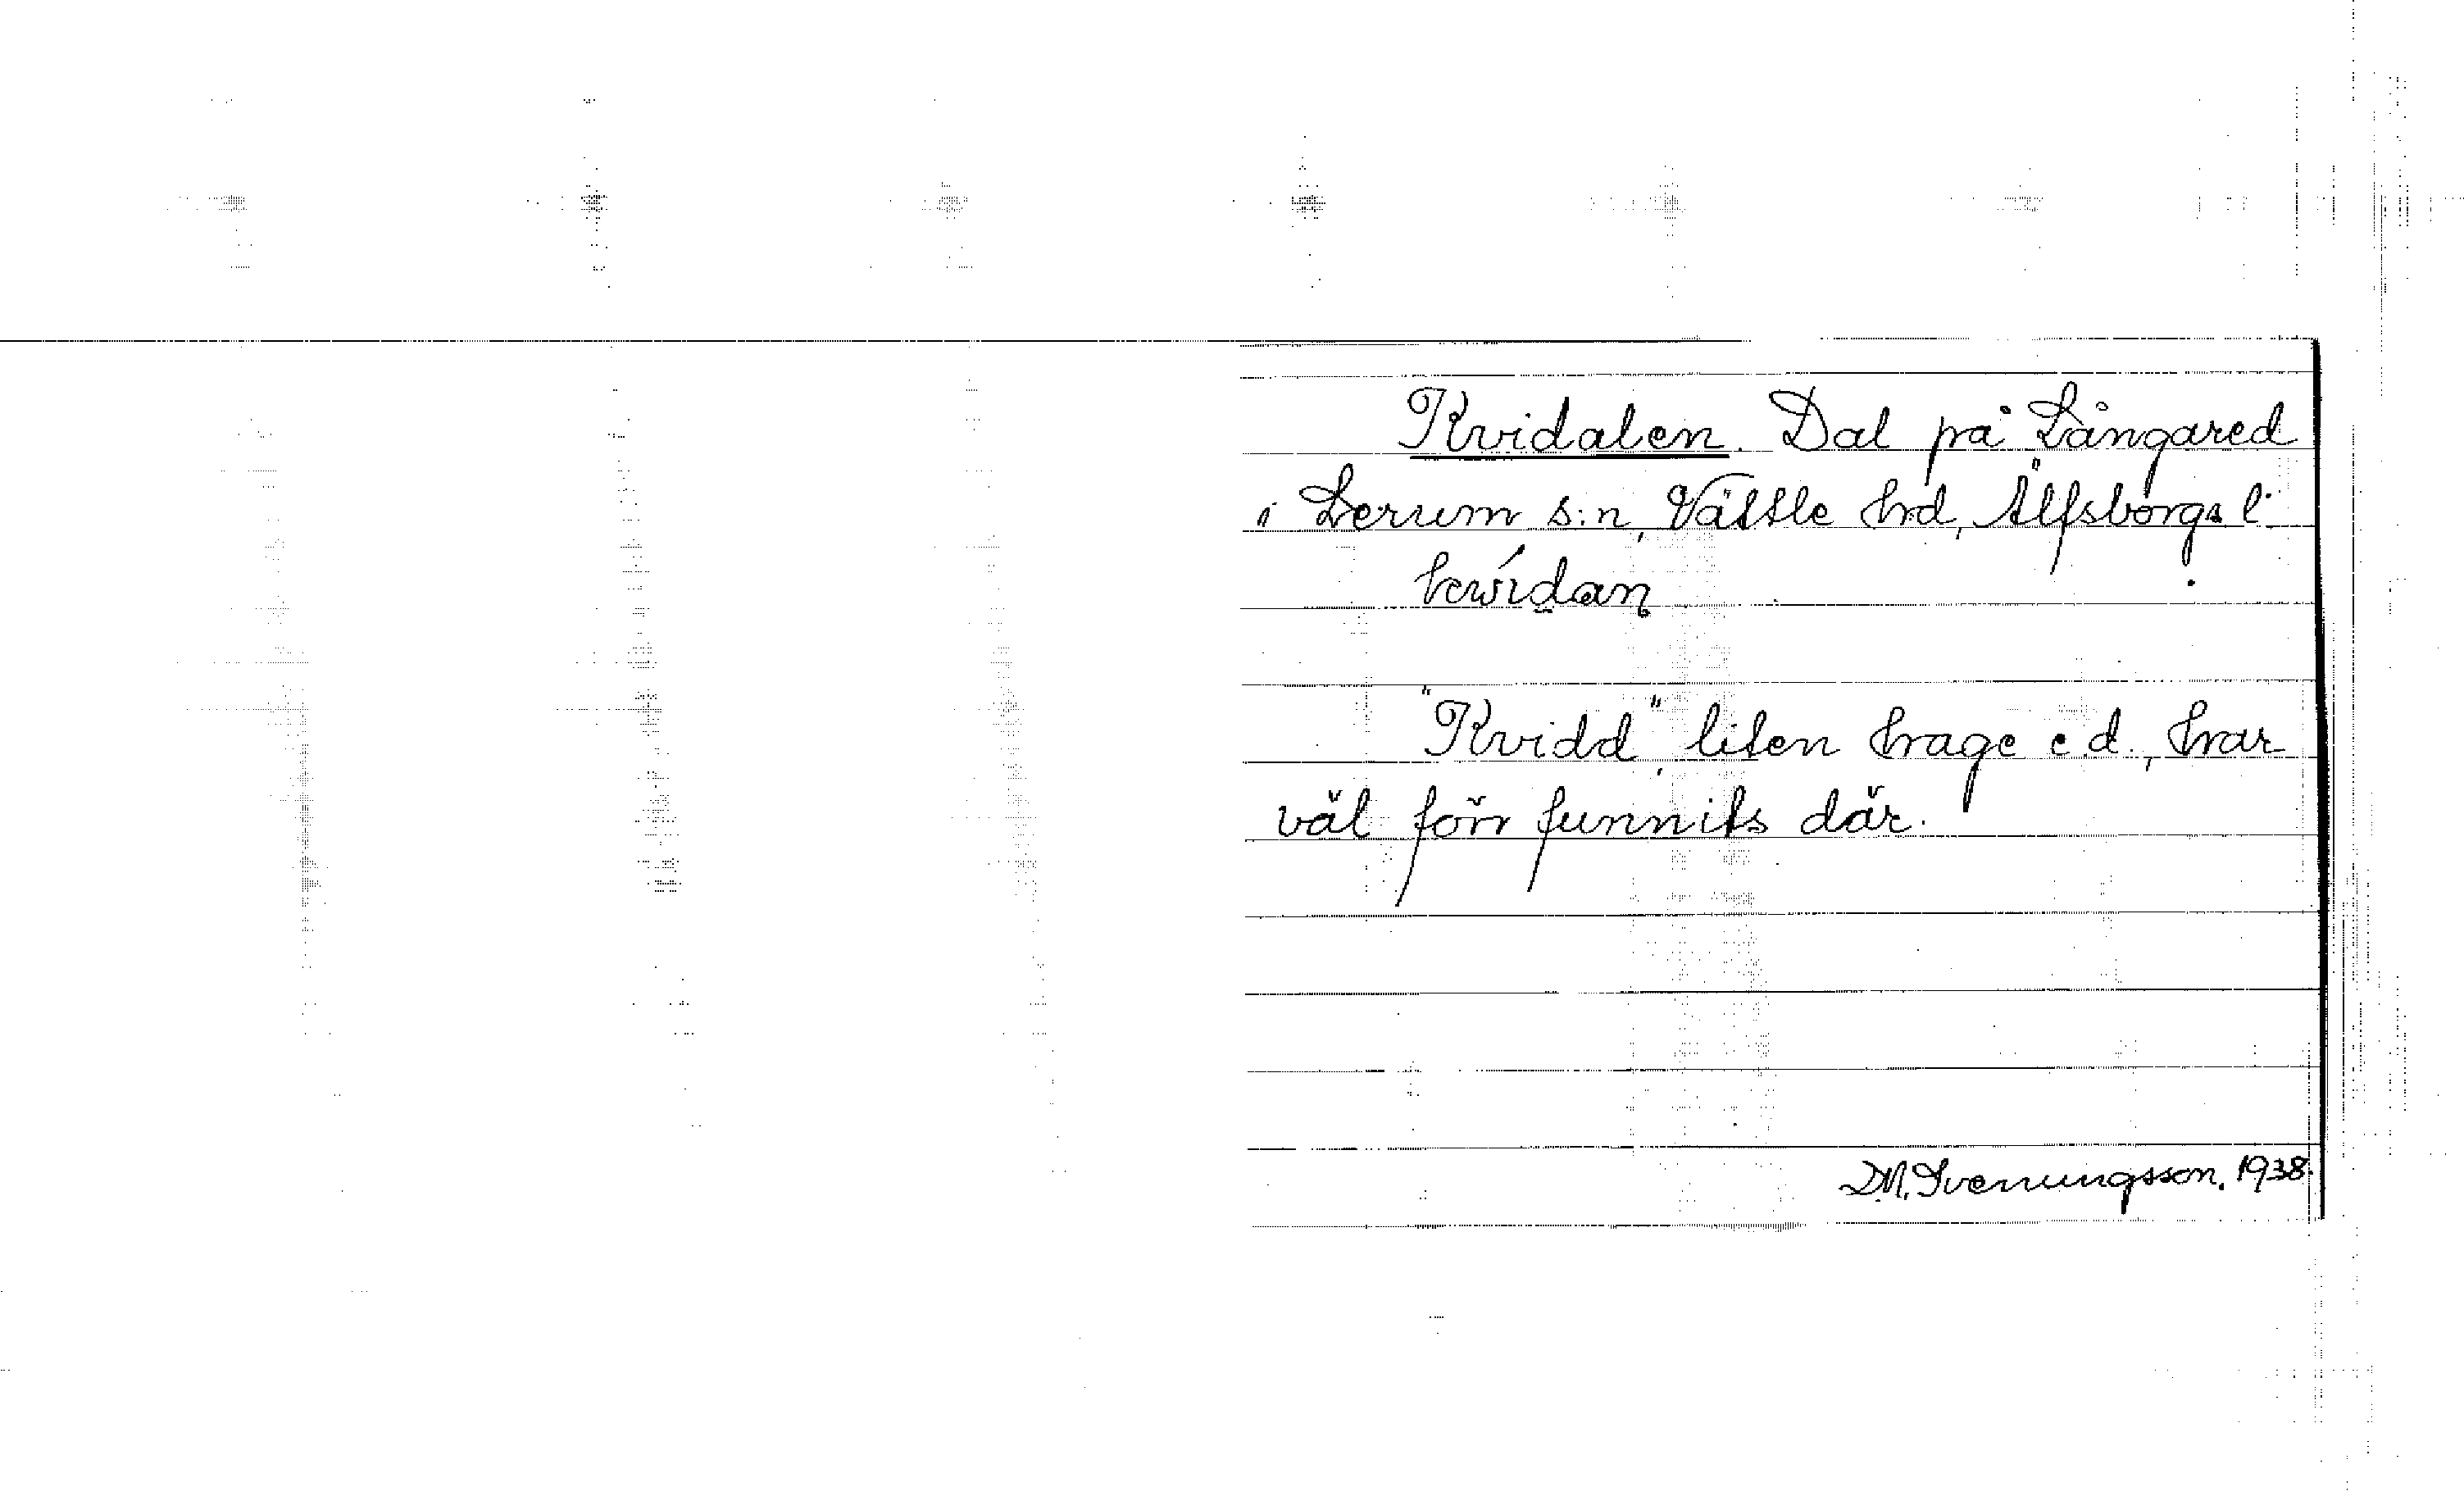 Kvidalen. Dal på Långared
i Lerum s:n, Vättle hd, Älfsborgs l.
kwídan
"Kvidd", liten hage e.d., har
väl förr funnits där.
D.M. Svenungsson. 1938.